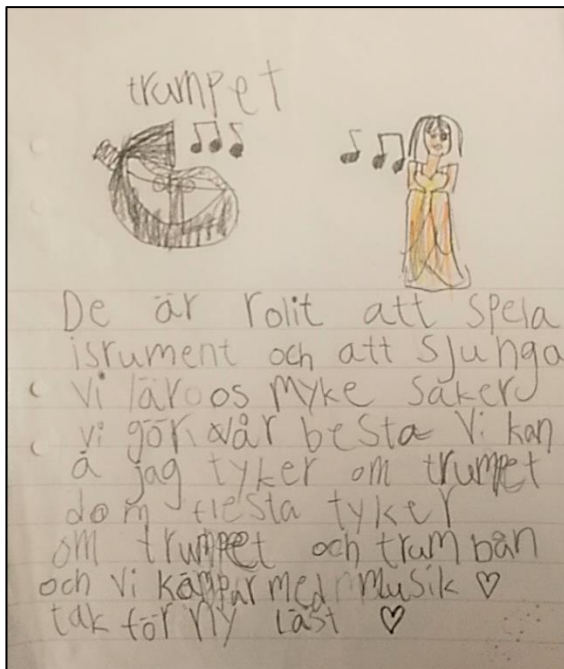 trumpet
De är rolit att spela
isrument och att sjunga
vi lär os myke saker
vi gör vår besta vi kan
å jag tyker om trumpet
dom flesta tyker
om trumpet och trumbån
och vi kämpar med musik ♡
tak för ny läst ♡